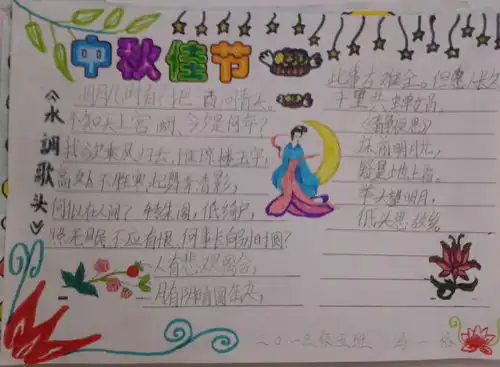 中秋佳节
《水调歌头》
明月几时有？把酒问青天。
不知天上宫阙，今夕是何年？
我欲乘风归去，
高处不胜寒，起舞弄清影，
何似在人间？转朱阁，低绮户，
照无眠。不应有恨，何事长向别时圆？
人有悲欢离合，
月有阴晴圆缺，
此事古难全。但愿人长久
千里共婵娟。
床前明月光，
疑是地上霜。
举头望明月，
低头思故